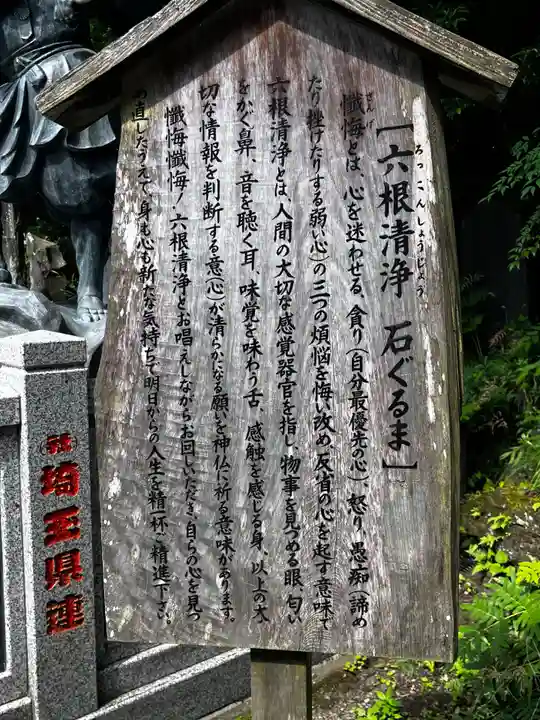 [六根清浄 石ぐるま]
ろっこんしょうじょう
ざんげ
懺悔とは、心を迷わせる、貪り(自分最優先の心)、怒り、愚痴(諦め
たり挫けたりする弱い心)の三つの煩悩を悔い改め、反省の心を起す意味で
六根清浄とは、人間の大切な感覚器官を指し、物事を見つめる眼、匂い
をかぐ鼻、音を聴く耳、味覚を味わう舌、感触を感じる身、以上の大
切な情報を判断する意(心)が清らかになる願いを神仏に祈る意味があります。
懺悔懺悔!六根清浄とお唱えしながらお回しいただき、自らの心を見つ
め直したうえで、身も心も新たな気持ちで明日からの人生を精一杯ご精進下さい。
埼玉県連